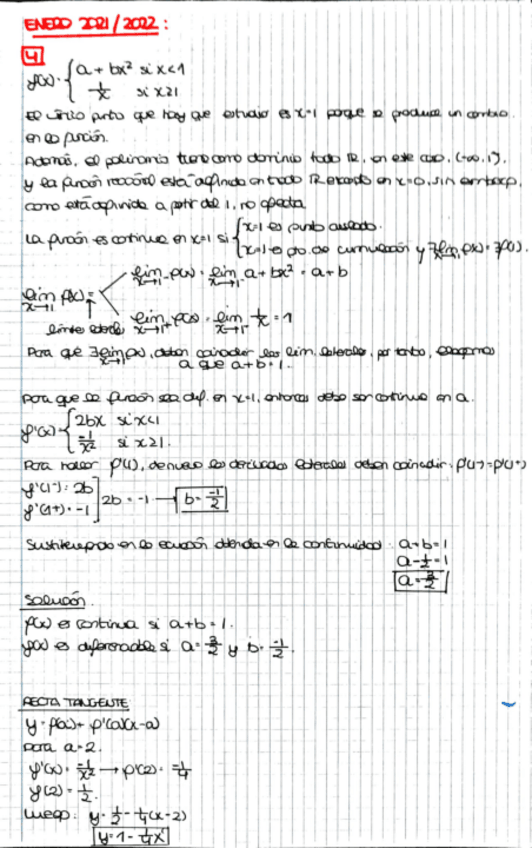 ENERO 2021/2022:
4
f(x) = { a + bx² si x<1
1/x si x≥1
El único punto que hay que estudiar es x=1 porque se produce un cambio
en la función.
Además, el polinomio tiene como dominio todo ℝ, en este caso, (-∞, 1),
y la función racional está definida en todo ℝ excepto en x=0, sin embargo,
como está definida a partir del 1, no afecta.
La función es continua en x=1 si { x=1 es punto aislado.
x=1 es pto. de acumulación y ∃lim x→1 f(x) = f(1).
lim x→1⁻ f(x) = lim x→1⁻ a + bx² = a + b
lim x→1 f(x) =
límites laterales lim x→1⁺ f(x) = lim x→1⁺ 1/x = 1
Para que ∃lim x→1 f(x), deben coincidir los lim. laterales, por tanto, obligamos
a que a+b=1.
para que la función sea dif. en x=1, entonces debe ser continua en a.
f'(x) = { 2bx si x<1
-1/x² si x≥1.
Para hallar f'(1), de nuevo las derivadas laterales deben coincidir: f'(1⁻)=f'(1⁺)
f'(1⁻) = 2b
f'(1⁺) = -1 ] 2b = -1 → b = -1/2
Sustituyendo en la ecuación obtenida en la continuidad: a+b=1
a-1/2=1
a=3/2
Solución.
f(x) es continua si a+b=1.
f(x) es diferenciable si a=3/2 y b=-1/2.
RECTA TANGENTE
y = f(a) + f'(a)(x-a)
para a=2.
f'(x) = -1/x² → f'(2) = -1/4
f(2) = 1/2.
Luego: y = 1/2 - 1/4(x-2)
y = 1 - 1/4x